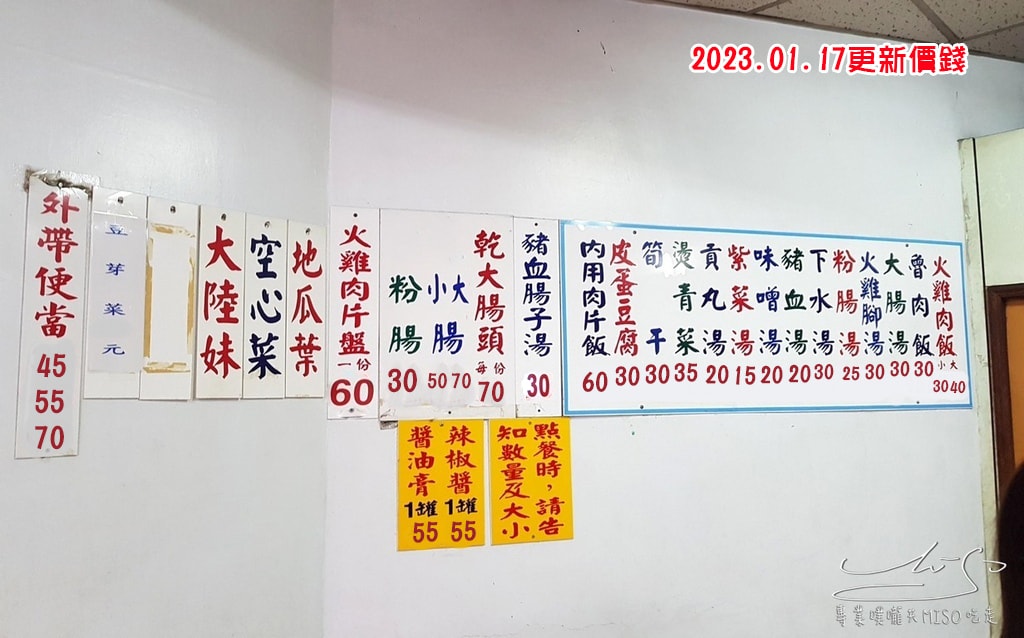 2023.01.17更新價錢
火雞肉飯 小30 大40
魯肉飯 30
大腸湯 30
火雞腳湯 30
粉腸湯 25
下水湯 30
豬血湯 20
味噌湯 20
紫菜湯 15
貢丸湯 20
燙青菜 35
筍干 30
皮蛋豆腐 30
內用肉片飯 60
豬血腸子湯 30
乾大腸頭 每份 70
大腸 70
小腸 50
粉腸 30
火雞肉片盤 一份 60
地瓜葉
空心菜
大陸妹
豆芽菜元
外帶便當 45 55 70
點餐時，請告
知數量及大小
辣椒醬 1罐 55
醬油膏 1罐 55
專業噗嚨共MISO吃走